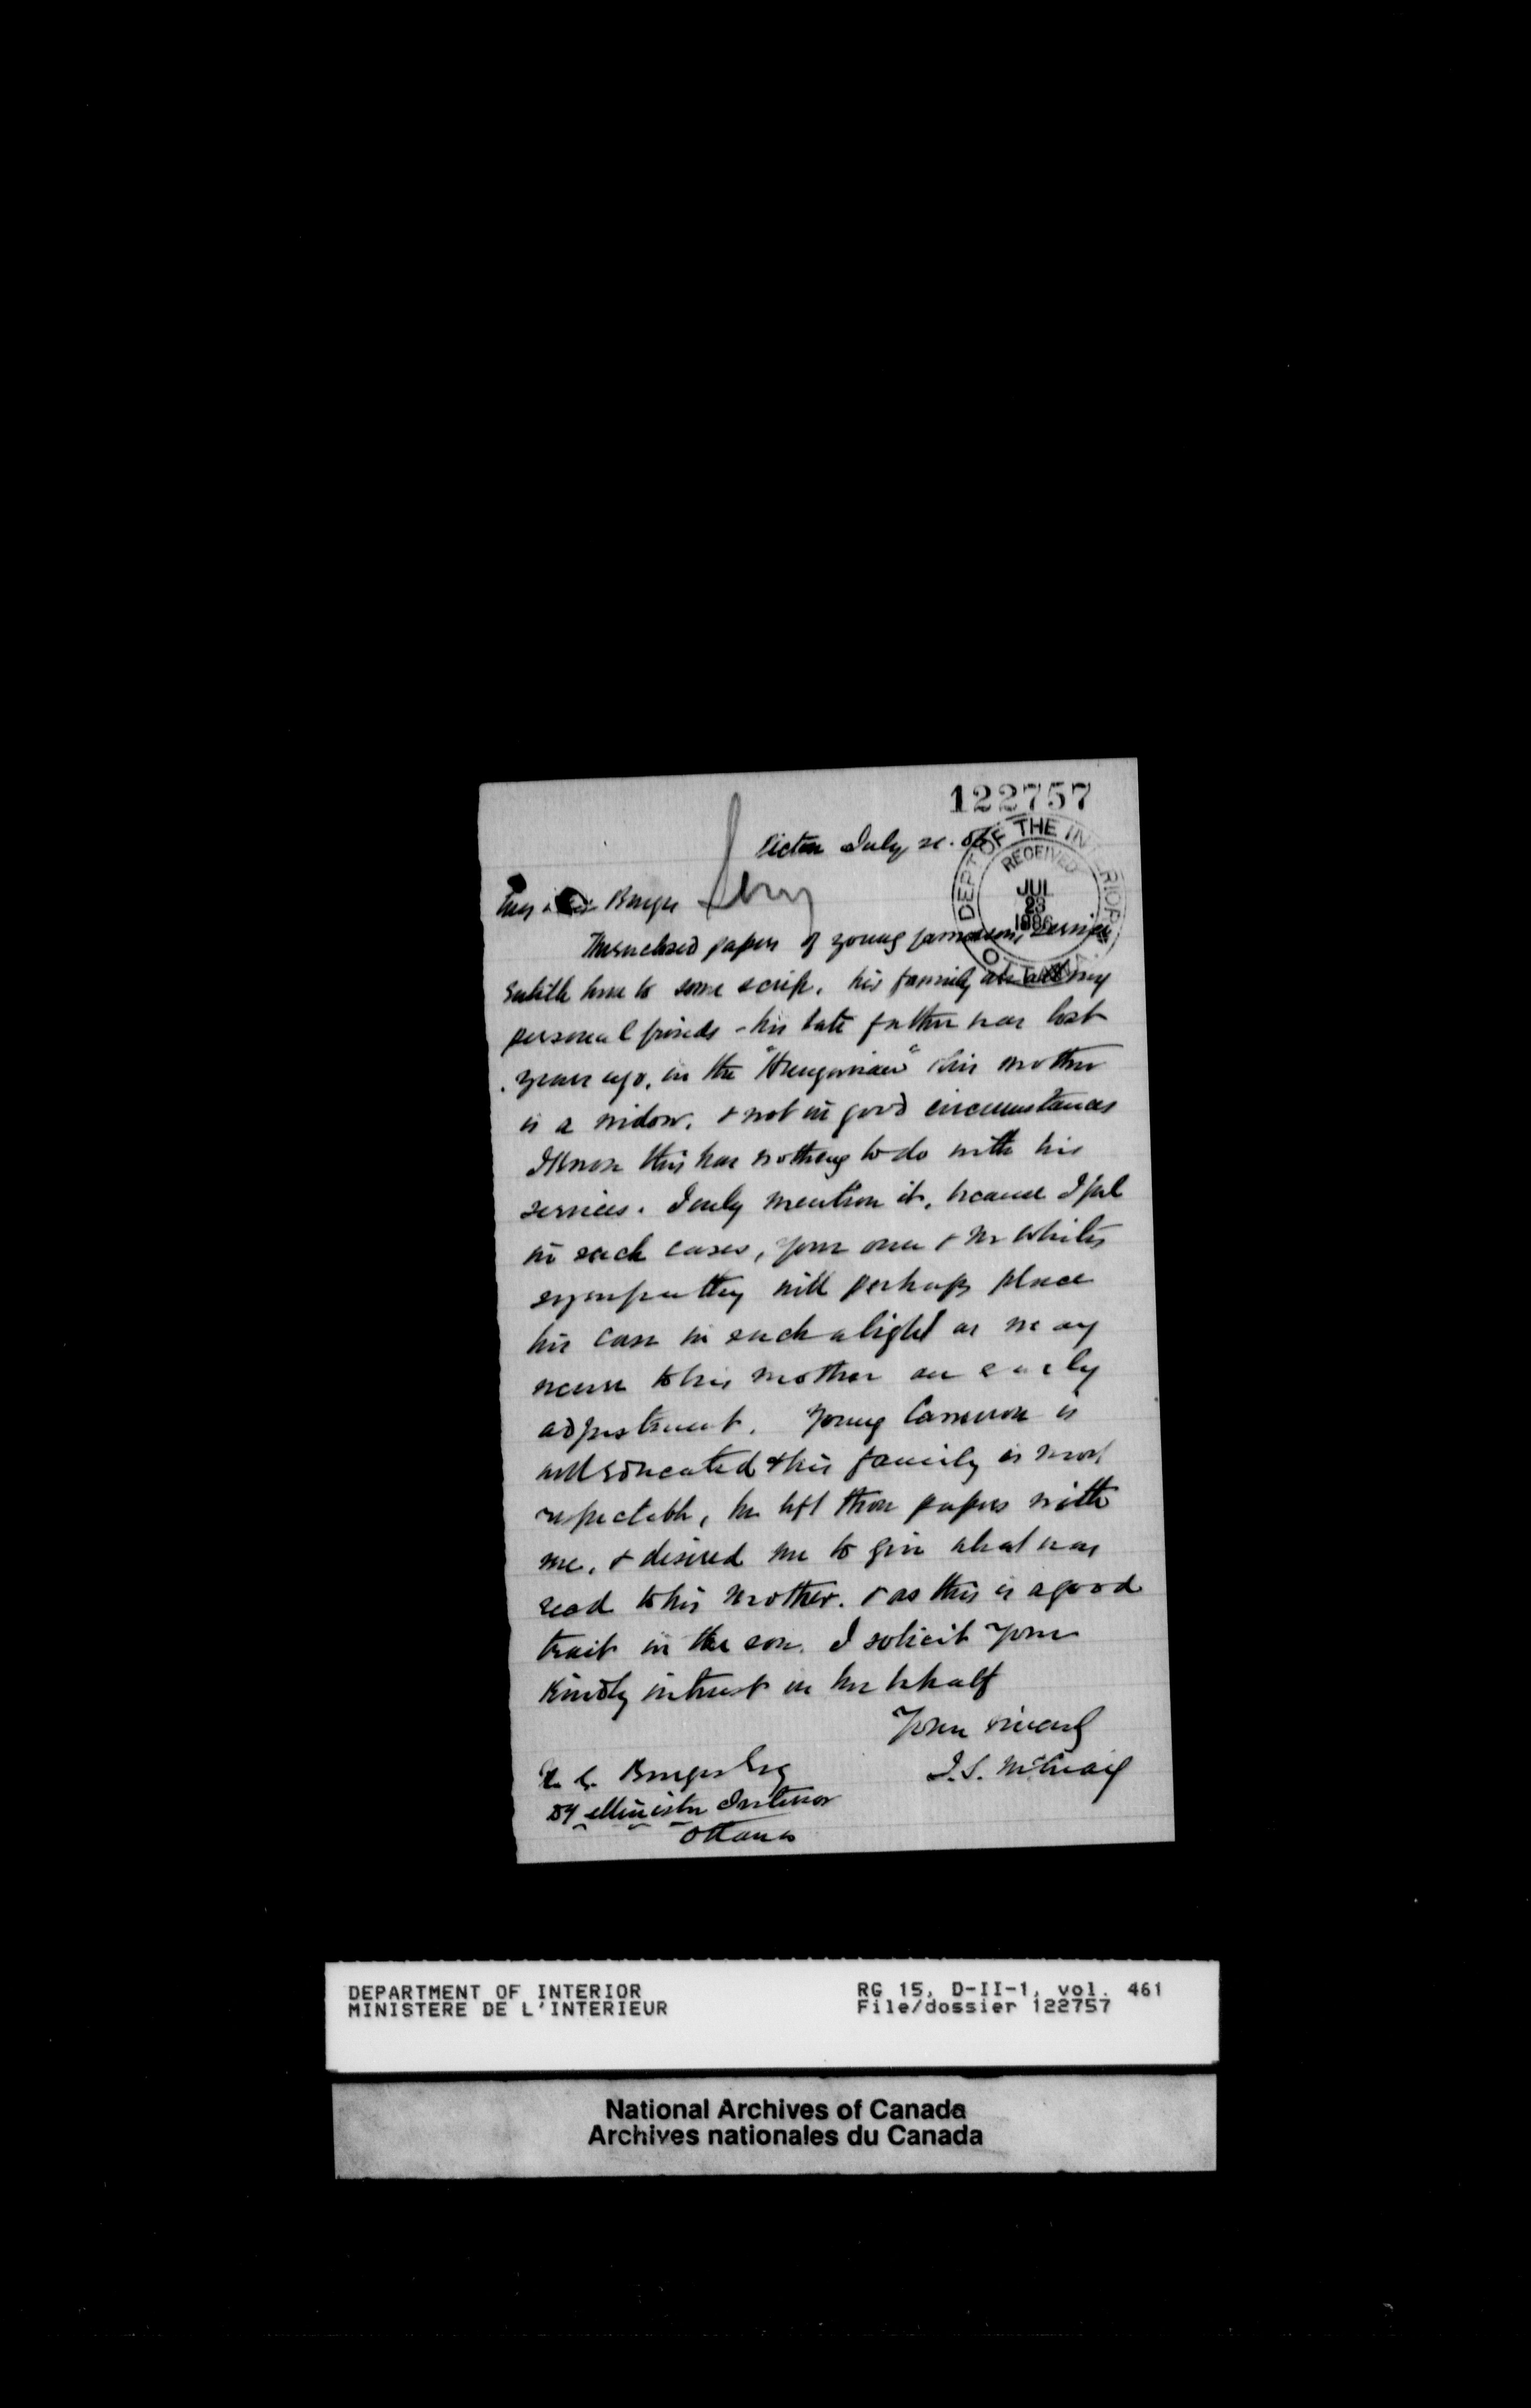 122757
Pictou July 20. 86
DEPT OF THE INTERIOR
RECEIVED
JUL
23
1886
OTTAWA
My Dear Burgess
The enclosed papers of young Cameron's service
entitle him to some scrip. his family are all my
personal friends - his late father was lost
years ago, in the "Hungarian" & his mother
is a widow, & not in good circumstances
I know this has nothing to do with his
services. I only mention it, because I feel
in such cases, your own & Mr Whites
sympathy will perhaps place
his case in such a light as may
secure to his mother an early
adjustment. Young Cameron is
well educated & his family is most
respectable, he left those papers with
me, & desired me to give what was
recd to his mother. & as this is a good
trait in the son. I solicit your
kindly interest in her behalf
Yours sincerely
Burgess Esq
Dy Minister Interior
Ottawa
DEPARTMENT OF INTERIOR
MINISTERE DE L'INTERIEUR
RG 15, D-II-1, vol. 461
File/dossier 122757
National Archives of Canada
Archives nationales du Canada